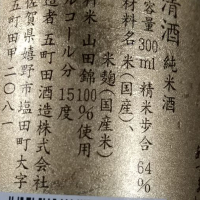 清酒 純米酒
内容量300ml 精米歩合 64%
原材料名 米(国産)、
米麹(国産米)
原料米 山田錦100%使用
アルコール分 15度
製造者 五町田酒造株式会社
佐賀県嬉野市塩田町大字
五町田甲二〇八一